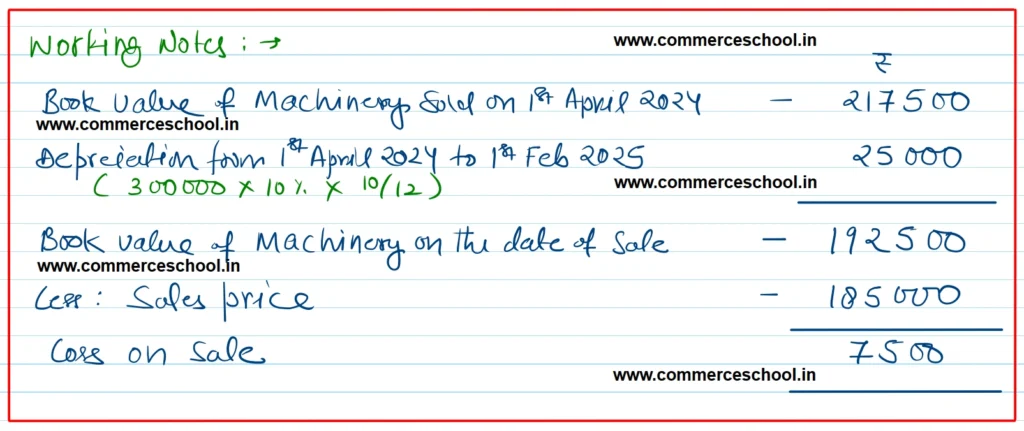 Working Notes : → www.commerceschool.in
₹
Book Value of Machinery Sold on 1st April 2024 - 217500
www.commerceschool.in
Depreciation from 1st April 2024 to 1st Feb 2025 25000
( 300000 × 10 % × 10/12 ) www.commerceschool.in
Book value of Machinery on the date of Sale - 192500
www.commerceschool.in
Less : Sales price - 185000
Loss on Sale 7500
www.commerceschool.in